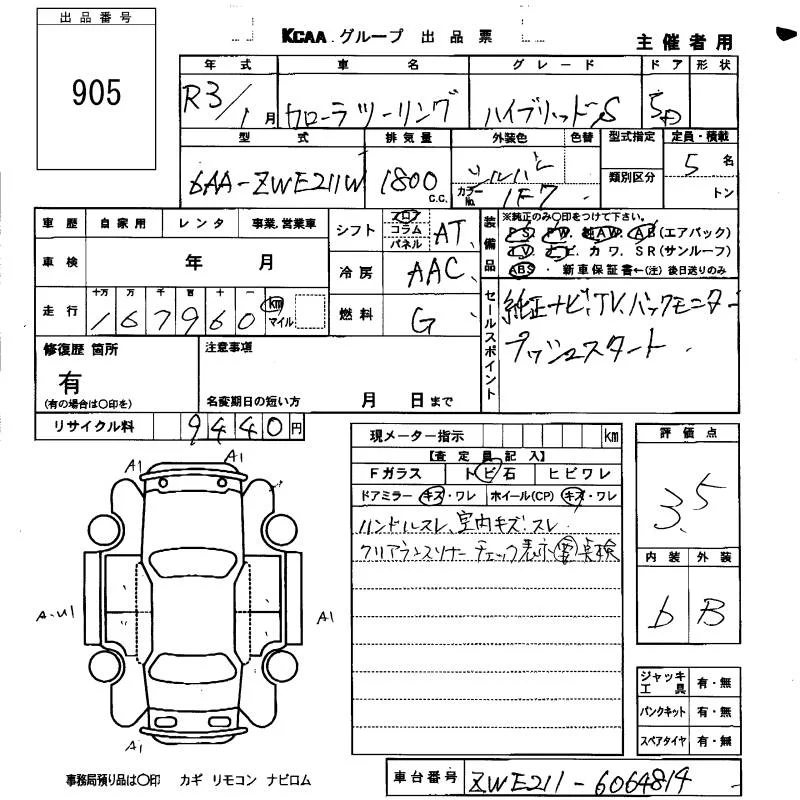 出品番号
905
KCAA グループ 出品票
主催者用
年式 車名 グレード ドア 形状
R3/1月 カローラツーリング ハイブリッドS 5D
型式 排気量 外装色 色替 型式指定 定員・積載
類別区分
6AA-ZWE211W 1800 C.C. シルバー 5名
カラーNo. 1F7 トン
車歴 自家用 レンタ 事業.営業車
車検 年 月
走行 十万 万 千 百 十 一
167960 km マイル
シフト フロア コラム パネル AT
冷房 AAC
燃料 G
装備品
※純正のみ○印をつけて下さい。
PS. PW. 純AW. AB(エアバック)
TV. ナビ. カワ. SR(サンルーフ)
ABS. 新車保証書←(注) 後日送りのみ
セールスポイント
純正ナビ、TV、バックモニター
プッシュスタート
修復歴 箇所
有
(有の場合は○印を)
注意事項
名変期日の短い方 月 日まで
リサイクル料 9440円
現メーター指示 km
【査定員記入】
Fガラス トビ石 ヒビワレ
ドアミラー キズ・ワレ ホイール(CP) キズ・ワレ
ハンドルスレ、室内キズ.スレ
クリアランスソナー チェック表示 要点検
評価点
3.5
内装 外装
b B
A1
A1
A-U1
A1
A1
ジャッキ工具 有・無
パンクキット 有・無
スペアタイヤ 有・無
事務局預り品は○印 カギ リモコン ナビロム
車台番号 ZWE211-6064814